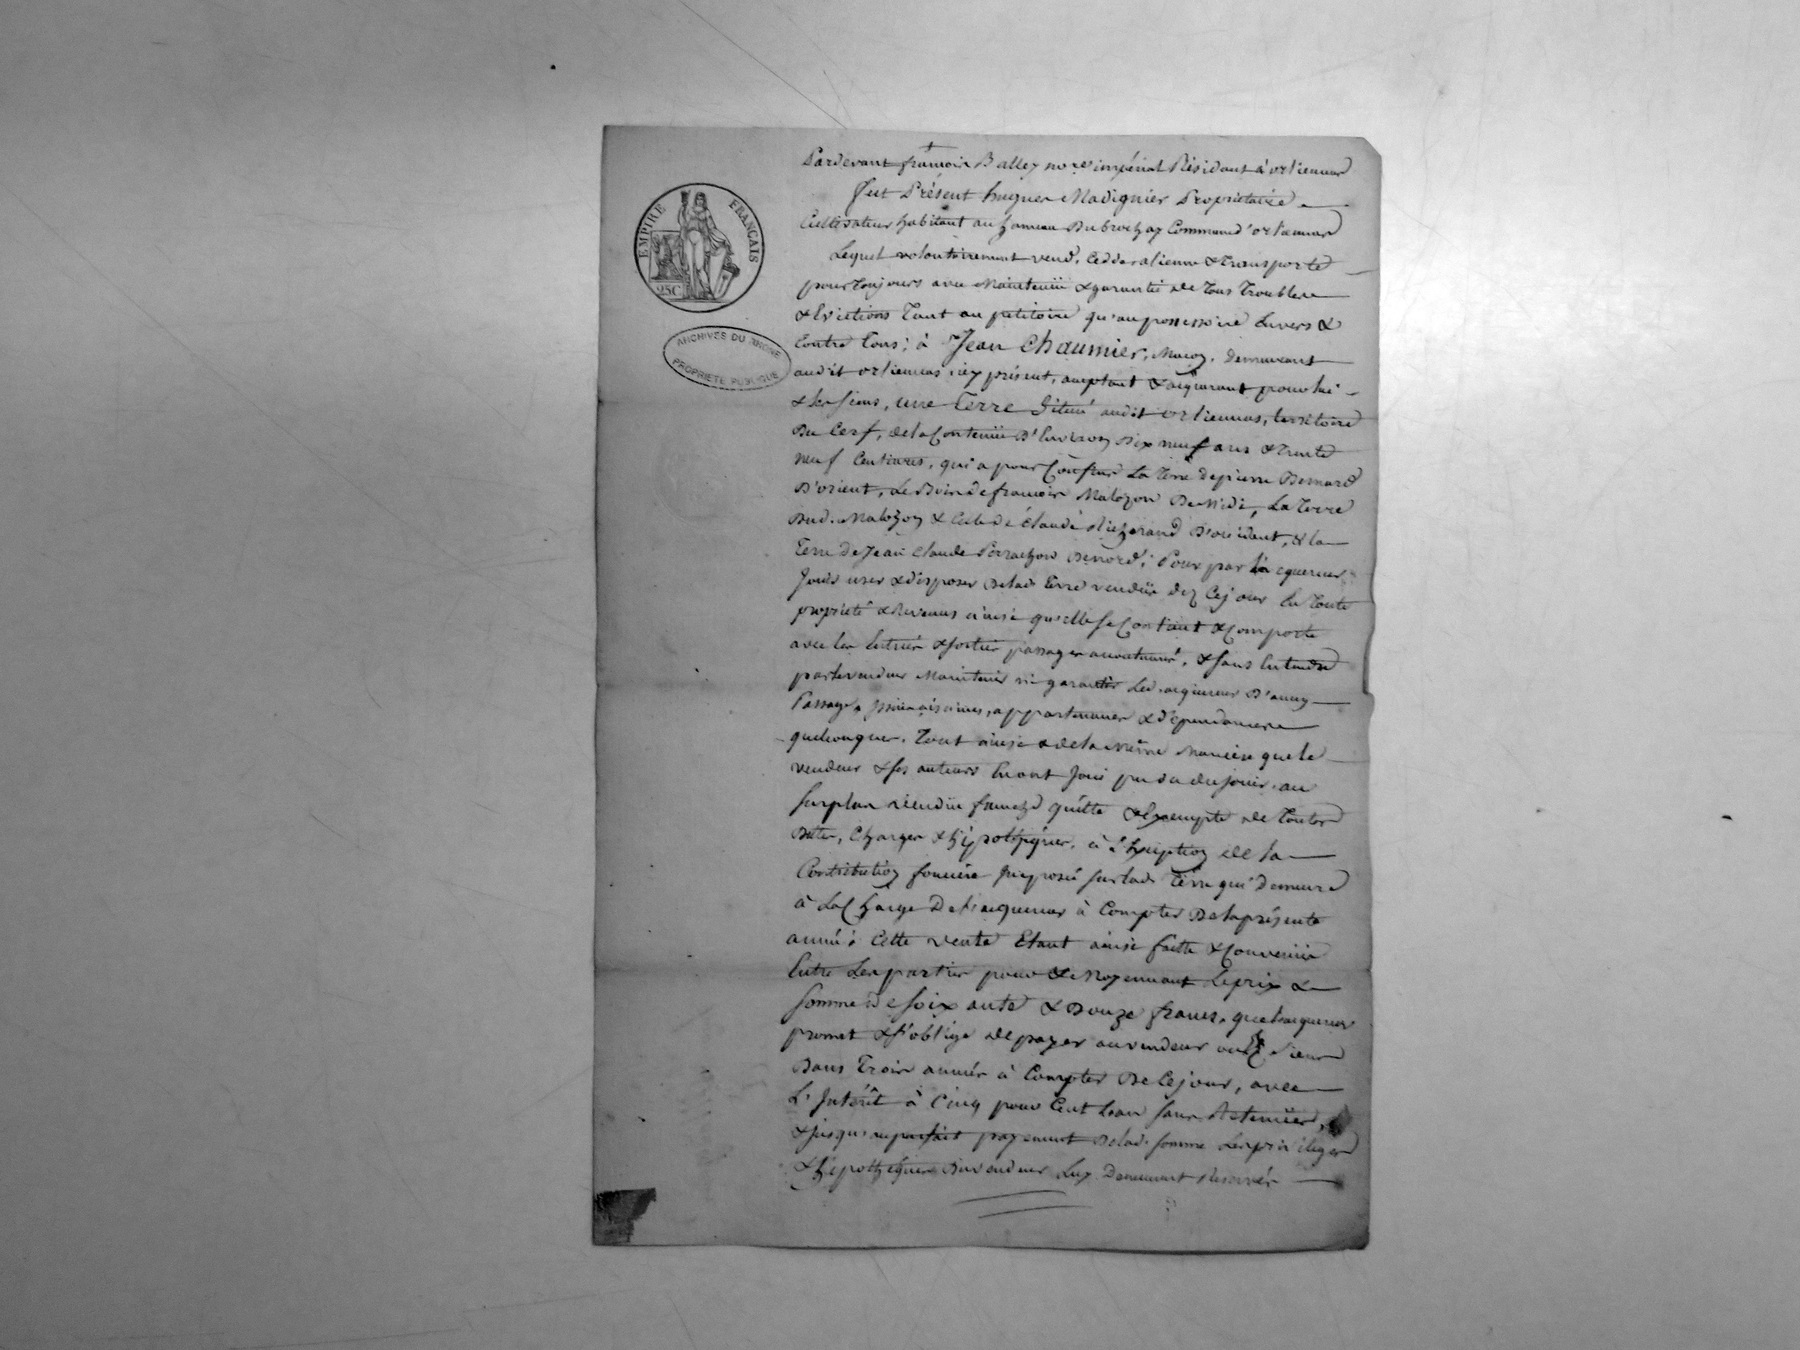 EMPIRE FRANÇAIS
25C
ARCHIVES DU RHONE
PROPRIETE PUBLIQUE
Pardevant françois Balley no.re impérial Résidant à orliennas
fut Présent hugues Madignier Propriétaire
Cultivateur habitant au hameau Du brochay Commune d'orliennas
Lequel volontairement vend, Cedde aliene & Transporte
pour Toujours avec Maintenüe & garantie de Tous Troubles
& Evictions Tant au petitoire qu'au possessoire Envers &
Contre Tous; à Jean Chaumier, Maçon, demeurant
audit orliennas icy présent, acceptant & acquerant pour lui
& les siens, une Terre Située audit orliennas, territoire
Du Cerf, de la Contenüe D'Environ Dix neuf ares & Trente
neuf Centiares, qui a pour Confins La Terre de pierre Bernard
D'orient, Le Bois de françois Malozon De Midi, La Terre
Dud. Malozon & Celle de Claude D'occident, & la
Terre de Jean Claude Perrachon De nord; Pour par l'acquereur
Jouir user & disposer De lad. Terre vendüe dez Ce jour En Toute
propriété & Revenus ainsi qu'elle se Contient & Comporte
avec les Entrées & sorties passages accoutumés, & sans Entendre
par le vendeur Maintenir ni garantir Led. acquereur D'aucun
Passage, aisances, appartenances & dépendances
quelconques. Tout ainsi & de la Même Maniere que le
vendeur & ses auteurs En ont Joui pu ou du jouir. au
surplus vendüe franche quitte & Exempte de Toutes
Dettes, Charges & hÿpothèques, à l'Exception de la
Contribution fonciere Imposée sur lad. Terre qui Demeure
à La Charge De l'acquereur à Compter De la présente
année; Cette vente Etant ainsi faitte & Convenüe
Entre Les parties pour & Moyennant Le prix &
Somme De soixante & Douze francs, que l'acquereur
promet & s'oblige de payer au vendeur ou Siens
Dans Trois années à Compter De Ce jour, avec
L'Intérêt à Cinq pour Cent L'an sans Retenüe,
& jusqu'au parfait payement De lad. somme Les privileges
& hÿpothèques Du vendeur Luy Demeurent Réservés